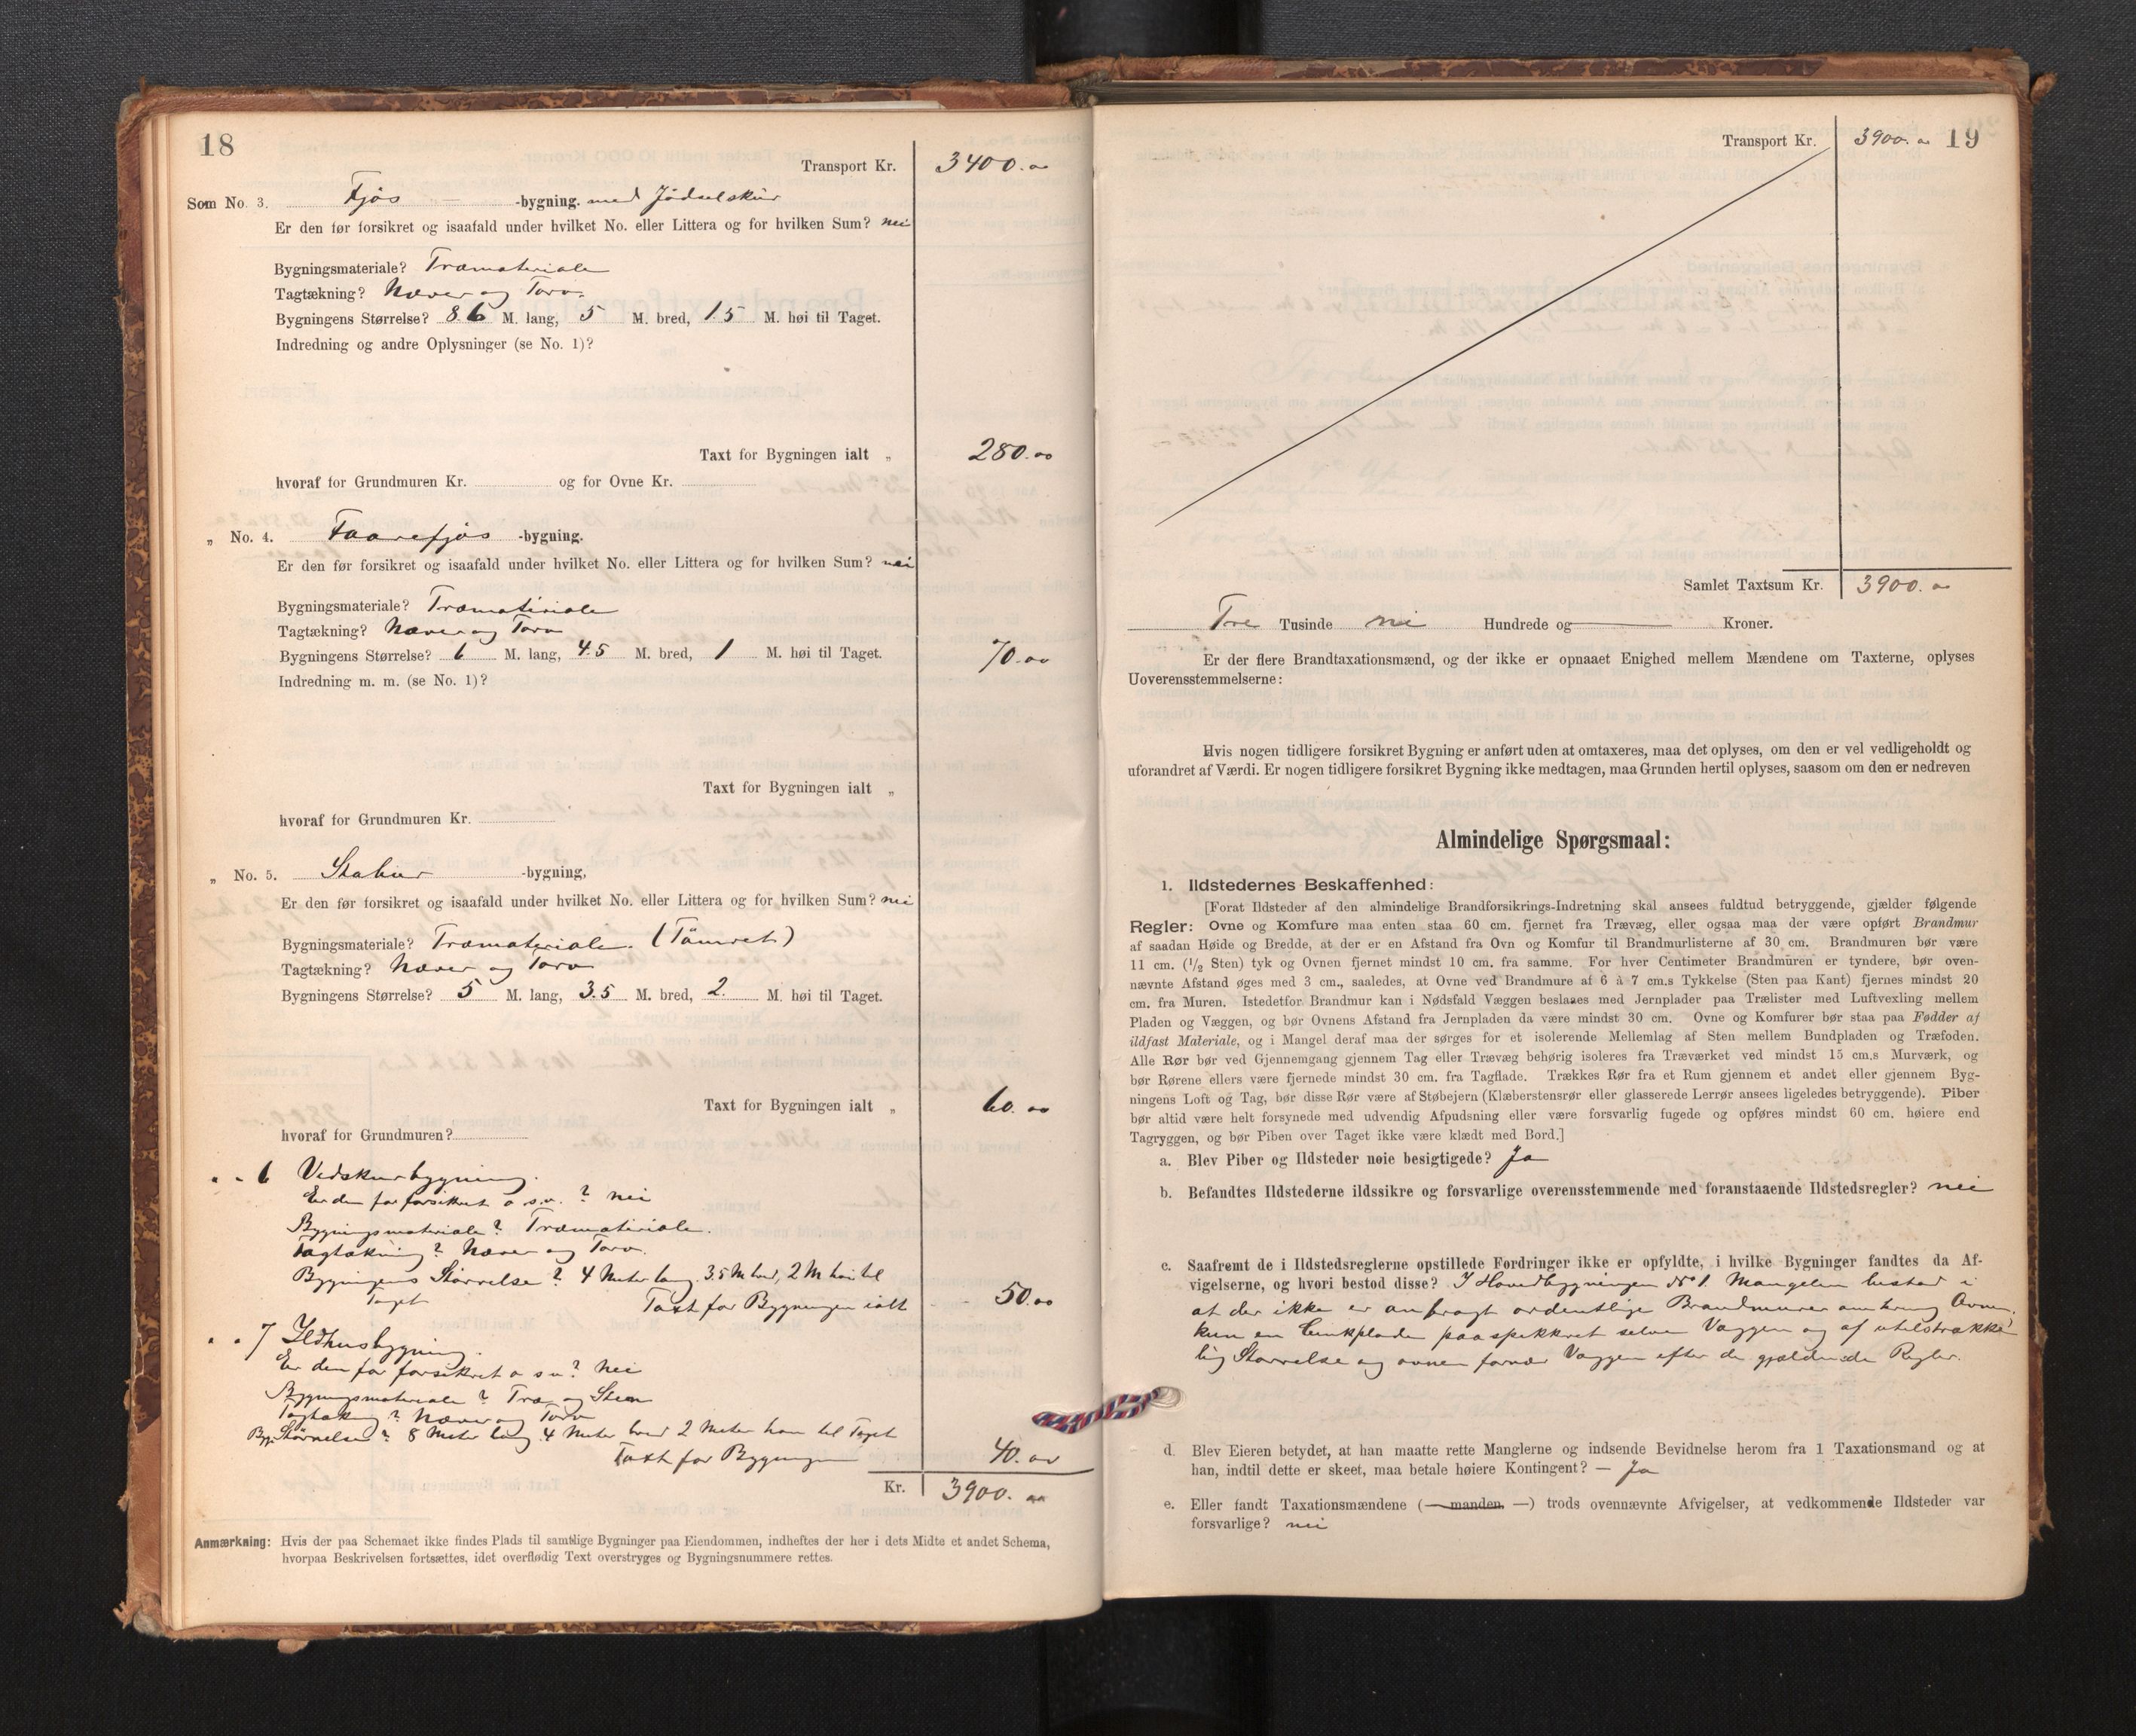 18
Transport Kr. 3400.00
Som No. 3. Fjøs - -bygning. med Jødselskur
Er den før forsikret og isaafald under hvilket No. eller Littera og for hvilken Sum? nei
Bygningsmateriale? Træmateriale
Tagtækning? Næver og Torv.
Bygningens Størrelse? 8.6 M. lang, 5 M. bred, 1.5 M. høi til Taget.
Indredning og andre Oplysninger (se No. 1)?
Taxt for Bygningen ialt „ 280.00
hvoraf for Grundmuren Kr. og for Ovne Kr.
„ No. 4. Faarefjøs -bygning.
Er den før forsikret og isaafald under hvilket No. eller Littera og for hvilken Sum? nei
Bygningsmateriale? Træmateriale
Tagtækning? Næver og Torv
Bygningens Størrelse? 6 M. lang, 4.5 M. bred, 1 M. høi til Taget. 70.00
Indredning m. m. (se No. 1)?
Taxt for Bygningen ialt „
hvoraf for Grundmuren Kr.
„ No. 5. Stabur -bygning,
Er den før forsikret og isaafald under hvilket No. eller Littera og for hvilken Sum? nei
Bygningsmateriale? Træmateriale. (Tømret)
Tagtækning? Næver og Torv
Bygningens Størrelse? 5 M. lang, 3.5 M. bred, 2. M. høi til Taget.
Taxt for Bygningen ialt „ 60.00
hvoraf for Grundmuren?
„ „ 6 Vedskurbygning.
Er den før forsikret o s.v. ? nei
Bygningsmateriale? Træmateriale.
Tagtækning? Næver og Torv.
Bygningens Størrelse? 4 Meter lang. 3.5 M bred, 2 M høi til
Taget Taxt for Bygningen ialt 50.00
„ „ 7 Ildhusbygning.
Er den før forsikret o s v? Nei
Bygningsmateriale? Træ og Sten
Tagtækning? Næver og Torv
Byg. Størrelse? 8 Meter lang 4 Meter bred 2 Meter høi til Taget
Taxt for Bygningen 40.00
Kr. 3900.00
Anmærkning: Hvis der paa Schemaet ikke findes Plads til samtlige Bygninger paa Eiendommen, indheftes der her i dets Midte et andet Schema,
hvorpaa Beskrivelsen fortsættes, idet overflødig Text overstryges og Bygningsnummere rettes.
Transport Kr. 3900.00 19
Samlet Taxtsum Kr. 3900.00
Tre Tusinde ni Hundrede og Kroner.
Er der flere Brandtaxationsmænd, og der ikke er opnaaet Enighed mellem Mændene om Taxterne, oplyses
Uoverensstemmelserne:
Hvis nogen tidligere forsikret Bygning er anført uden at omtaxeres, maa det oplyses, om den er vel vedligeholdt og
uforandret af Værdi. Er nogen tidligere forsikret Bygning ikke medtagen, maa Grunden hertil oplyses, saasom om den er nedreven
Almindelige Spørgsmaal:
1. Ildstedernes Beskaffenhed:
[Forat Ildsteder af den almindelige Brandforsikrings-Indretning skal ansees fuldtud betryggende, gjælder følgende
Regler: Ovne og Komfure maa enten staa 60 cm. fjernet fra Trævæg, eller ogsaa maa der være opført Brandmur
af saadan Høide og Bredde, at der er en Afstand fra Ovn og Komfur til Brandmurlisterne af 30 cm. Brandmuren bør være
11 cm. (1/2 Sten) tyk og Ovnen fjernet mindst 10 cm. fra samme. For hver Centimeter Brandmuren er tyndere, bør oven-
nævnte Afstand øges med 3 cm., saaledes, at Ovne ved Brandmure af 6 à 7 cm.s Tykkelse (Sten paa Kant) fjernes mindst 20
cm. fra Muren. Istedetfor Brandmur kan i Nødsfald Væggen beslaaes med Jernplader paa Trælister med Luftvexling mellem
Pladen og Væggen, og bør Ovnens Afstand fra Jernpladen da være mindst 30 cm. Ovne og Komfurer bør staa paa Fødder af
ildfast Materiale, og i Mangel deraf maa der sørges for et isolerende Mellemlag af Sten mellem Bundpladen og Træfoden.
Alle Rør bør ved Gjennemgang gjennem Tag eller Trævæg behørig isoleres fra Træværket ved mindst 15 cm.s Murværk, og
bør Rørene ellers være fjernede mindst 30 cm. fra Tagflade. Trækkes Rør fra et Rum gjennem et andet eller gjennem Byg-
ningens Loft og Tag, bør disse Rør være af Støbejern (Klæberstensrør eller glasserede Lerrør ansees ligeledes betryggende). Piber
bør altid være helt forsynede med udvendig Afpudsning eller være forsvarlig fugede og opføres mindst 60 cm. høiere end
Tagryggen, og bør Piben over Taget ikke være klædt med Bord.]
a. Blev Piber og Ildsteder nøie besigtigede? Ja
b. Befandtes Ildstederne ildssikre og forsvarlige overensstemmende med foranstaaende Ildstedsregler? nei
c. Saafremt de i Ildstedsreglerne opstillede Fordringer ikke er opfyldte, i hvilke Bygninger fandtes da Af-
vigelserne, og hvori bestod disse? I Hovedbygningen No 1 Mangelen bestod i
at der ikke er anbragt ordentlige Brandmurer omkring Ovnen,
kun en Zinkplade paaspikkret selve Væggen og af utilstrække
lig Størrelse og ovnen fornær Væggen efter de gjældende Regler.
d. Blev Eieren betydet, at han maatte rette Manglerne og indsende Bevidnelse herom fra 1 Taxationsmand og at
han, indtil dette er skeet, maa betale høiere Kontingent? — Ja
e. Eller fandt Taxationsmændene (— manden —) trods ovennævnte Afvigelser, at vedkommende Ildsteder var
forsvarlige? nei